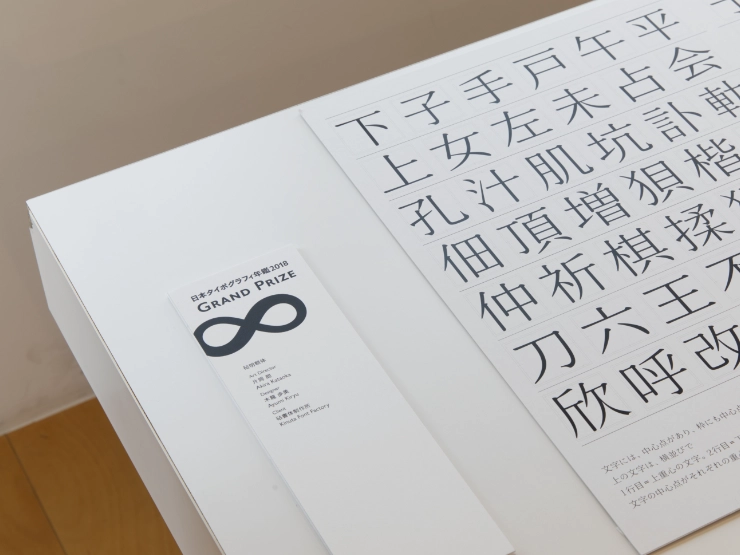 日本タイポグラフィ年鑑2018
GRAND PRIZE
砧明朝体
Art Director
片岡 朗
Akira Kataoka
Designer
木龍 歩美
Ayumi Kiryu
Client
砧書体制作所
Kinuta Font Factory
下子手戸午平
上女左未占会
孔汁肌坑訃軸
佃頂増狽楷
仲祈棋揉
刀六王不
欣呼改
文字には、中心点があり、枠にも中心点
上の文字は、横並びで
1行目=上重心の文字。2行目=下
文字の中心点がそれぞれの重